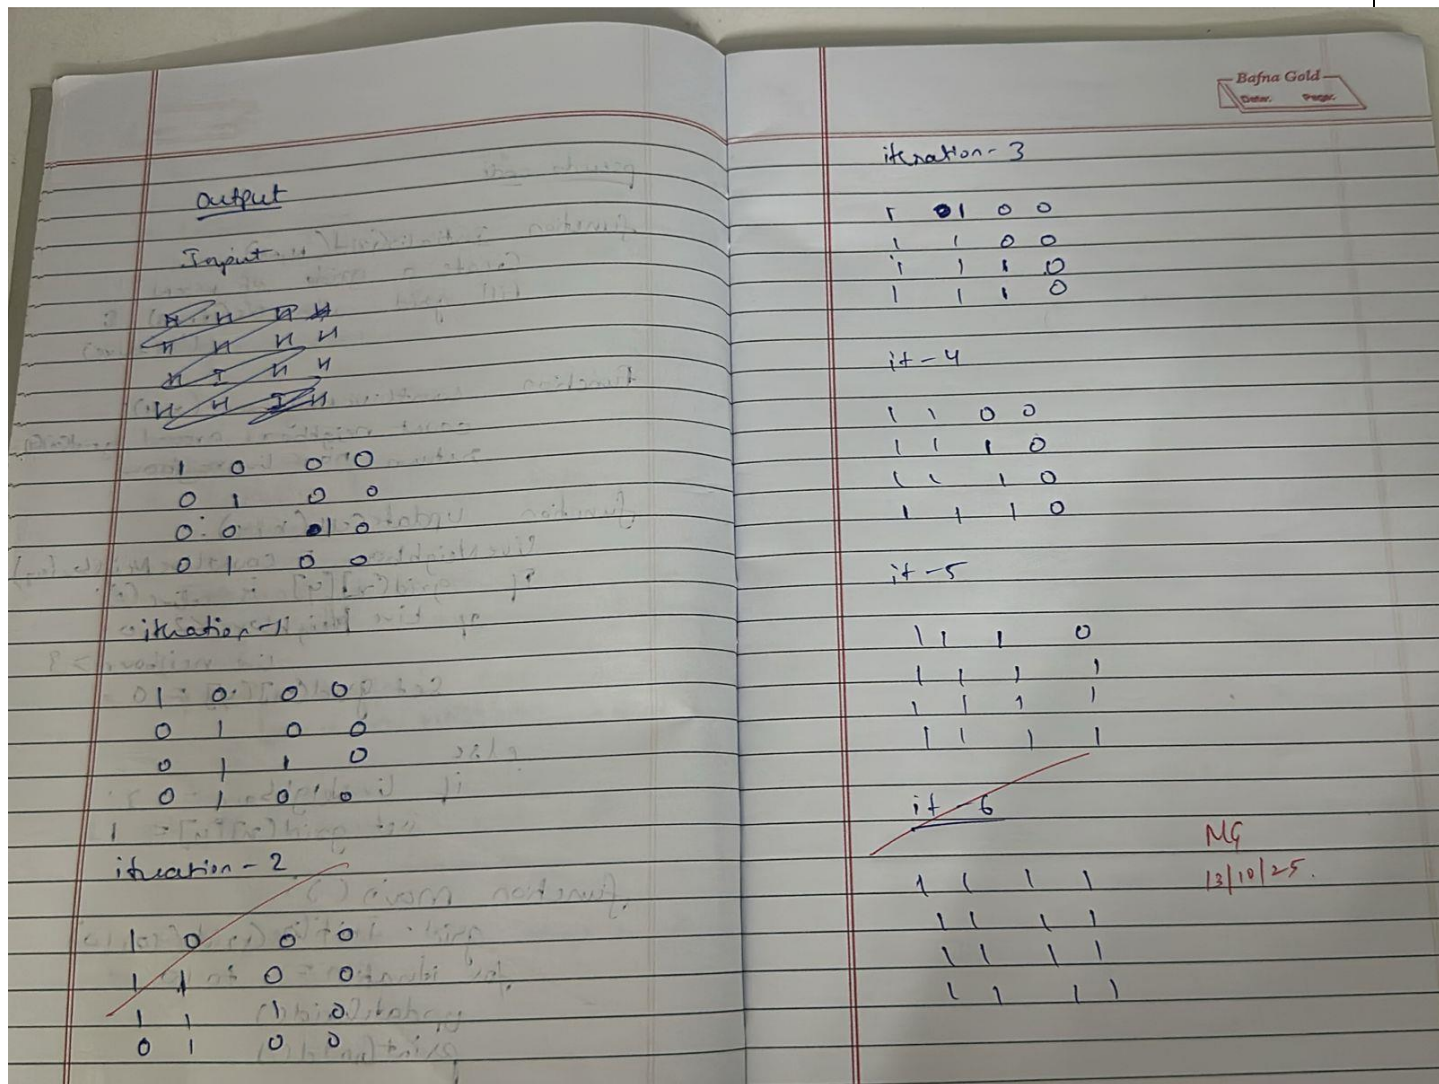 Output
Input
H H H H
H H H H
H I H H
H H I H
1 0 0 0
0 1 0 0
0 0 1 0
0 1 0 0
iteration-1
1 0 0 0
0 1 0 0
0 1 1 0
0 1 0 0
iteration-2
1 0 0 0
1 1 0 0
1 1 1 0
0 1 0 0
Bafna Gold
Date: Page:
iteration-3
1 1 0 0
1 1 0 0
1 1 1 0
1 1 1 0
it-4
1 1 0 0
1 1 1 0
1 1 1 0
1 1 1 0
it-5
1 1 1 0
1 1 1 1
1 1 1 1
1 1 1 1
it-6
1 1 1 1
1 1 1 1
1 1 1 1
1 1 1 1
MG
13/10/25.